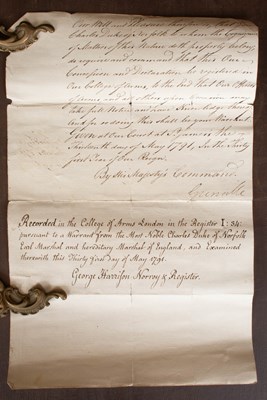 Our Will and Pleasure
Charles Duke of Norfolk to whom the Cognizance
of Matters of this Nature doth properly belong,
to require and command that this Our
Concession and Declaration be registered in
Our College of Arms, to the end that Our Officers
of Arms and all others
take full Notice and have Knowledge thereof
And for so doing this shall be your Warrant
Given at our Court at St James's the
day of May 1791, in the Thirty
first Year of Our Reign.
By His Majesty's Command
Grenville
Recorded in the College of Arms London in the Register I: 34:
pursuant to a Warrant from the Most Noble Charles Duke of Norfolk
Earl Marshal and hereditary Marshal of England, and Examined
therewith this Thirty first Day of May 1791.
George Harrison Norroy & Register.